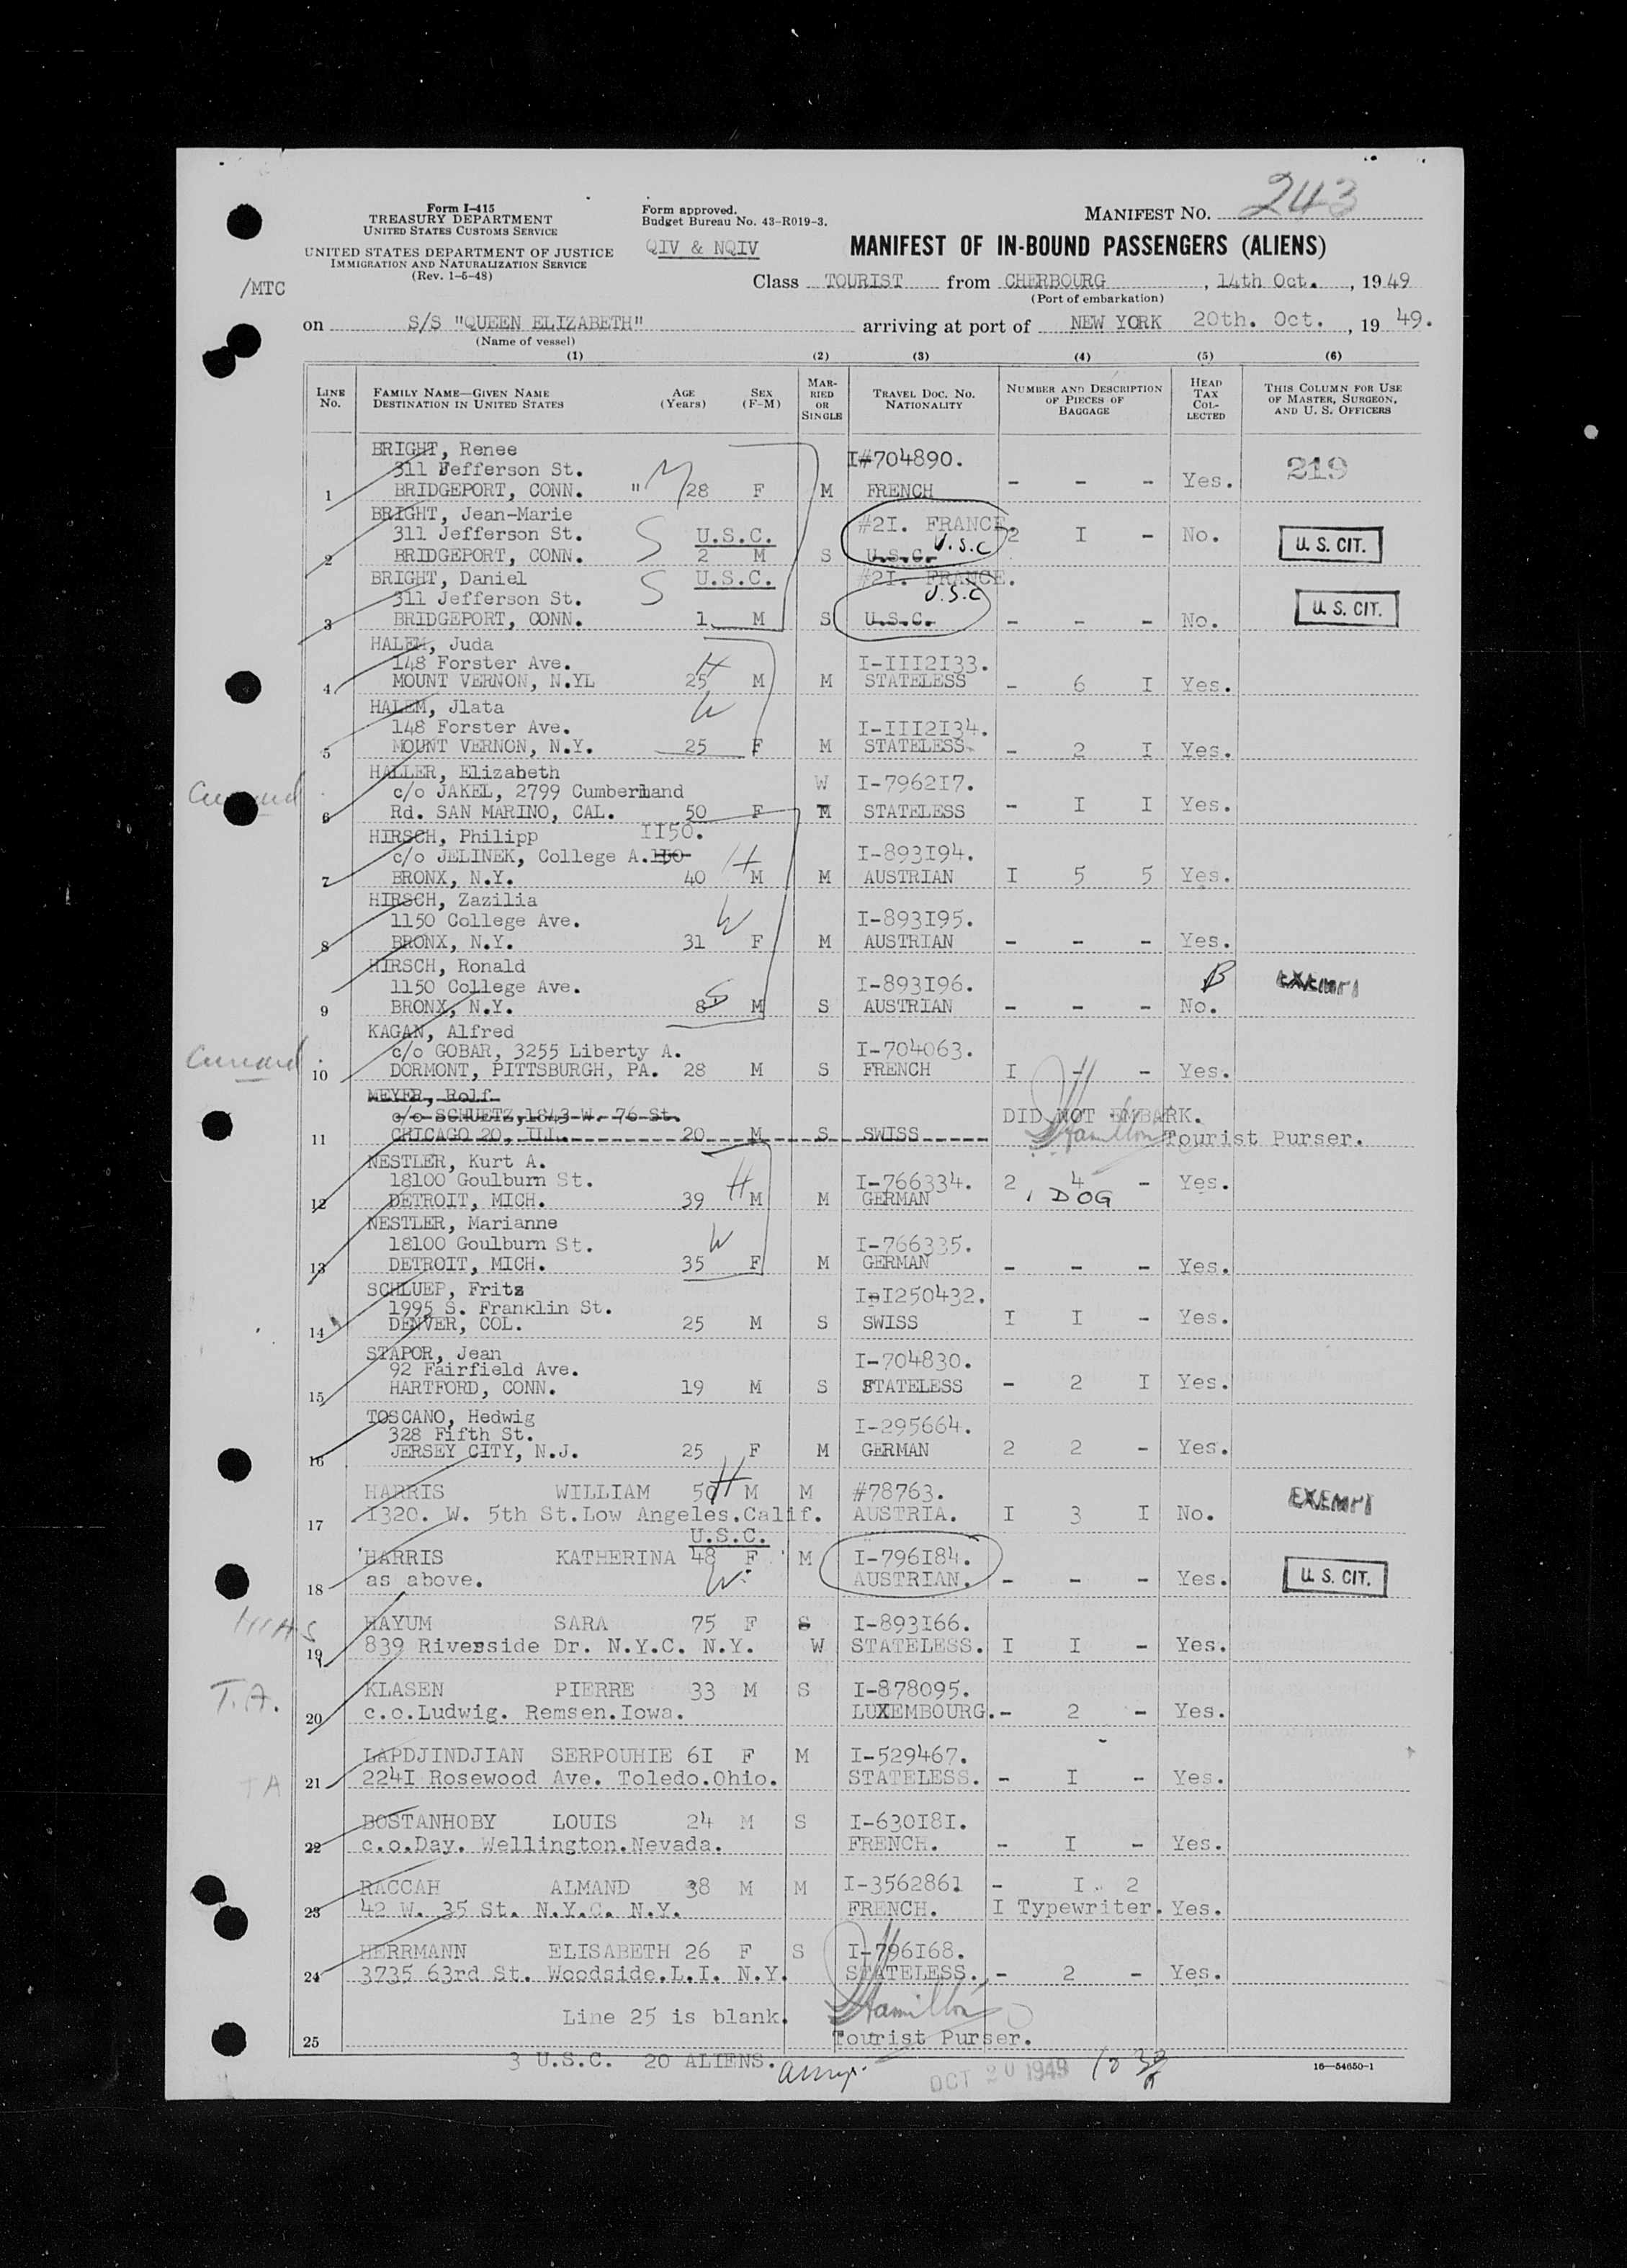 Form I-415
TREASURY DEPARTMENT
UNITED STATES CUSTOMS SERVICE
UNITED STATES DEPARTMENT OF JUSTICE
IMMIGRATION AND NATURALIZATION SERVICE
(Rev. 1-5-48)
/MTC
Form approved.
Budget Bureau No. 43-R019-3.
QIV & NQIV
MANIFEST NO. 243
MANIFEST OF IN-BOUND PASSENGERS (ALIENS)
Class TOURIST from CHERBOURG, 14th Oct., 1949
(Port of embarkation)
on S/S "QUEEN ELIZABETH" arriving at port of NEW YORK 20th. Oct., 19 49.
(Name of vessel)
(1) (2) (3) (4) (5) (6)
LINE NO.
FAMILY NAME—GIVEN NAME
DESTINATION IN UNITED STATES
AGE (Years)
SEX (F-M)
MARRIED OR SINGLE
TRAVEL DOC. NO.
NATIONALITY
NUMBER AND DESCRIPTION OF PIECES OF BAGGAGE
HEAD TAX COLLECTED
THIS COLUMN FOR USE OF MASTER, SURGEON, AND U. S. OFFICERS
BRIGHT, Renee I#704890.
311 Jefferson St. M 219
1 BRIDGEPORT, CONN. " 28 F M FRENCH - - - Yes.
BRIGHT, Jean-Marie #2I. FRANCE.
311 Jefferson St. S U.S.C. U.S.C 2 I - No. U. S. CIT.
2 BRIDGEPORT, CONN. 2 M S U.S.C.
BRIGHT, Daniel S U.S.C. #2I. FRANCE.
311 Jefferson St. U.S.C U. S. CIT.
3 BRIDGEPORT, CONN. 1 M S U.S.C. - - - No.
HALEM, Juda
148 Forster Ave. H I-III2I33.
4 MOUNT VERNON, N.YL 25 M M STATELESS - 6 I Yes.
HALEM, Jlata W
148 Forster Ave. I-III2I34.
5 MOUNT VERNON, N.Y. 25 F M STATELESS. - 2 I Yes.
HALLER, Elizabeth W I-7962I7.
Cunard c/o JAKEL, 2799 Cumberland
6 Rd. SAN MARINO, CAL. 50 F M STATELESS - I I Yes.
HIRSCH, Philipp II50.
c/o JELINEK, College A. 110 H I-893I94.
7 BRONX, N.Y. 40 M M AUSTRIAN I 5 5 Yes.
HIRSCH, Zazilia
1150 College Ave. W I-893I95.
8 BRONX, N.Y. 31 F M AUSTRIAN - - - Yes.
HIRSCH, Ronald
1150 College Ave. I-893I96. EXEMPT
9 BRONX, N.Y. 8 S M S AUSTRIAN - - - No.
KAGAN, Alfred
Cunard c/o GOBAR, 3255 Liberty A. I-704063.
10 DORMONT, PITTSBURGH, PA. 28 M S FRENCH I - - Yes.
MEYER, Rolf
c/o SCHUETZ, 1843 W. 76 St. DID NOT EMBARK.
11 CHICAGO 20, ILL. 20 M S SWISS Hamilton Tourist Purser.
NESTLER, Kurt A.
18100 Goulburn St. H I-766334. 2 4 - Yes.
12 DETROIT, MICH. 39 M M GERMAN 1 DOG
NESTLER, Marianne
18100 Goulburn St. W I-766335.
13 DETROIT, MICH. 35 F M GERMAN - - - Yes.
SCHLUEP, Fritz
1995 S. Franklin St. I-I250432.
14 DENVER, COL. 25 M S SWISS I I - Yes.
STAPOR, Jean
92 Fairfield Ave. I-704830.
15 HARTFORD, CONN. 19 M S STATELESS - 2 I Yes.
TOSCANO, Hedwig
328 Fifth St. I-295664.
16 JERSEY CITY, N.J. 25 F M GERMAN 2 2 - Yes.
HARRIS WILLIAM 50 H M M #78763. EXEMPT
17 I320. W. 5th St.Low Angeles.Calif. AUSTRIA. I 3 I No.
U.S.C.
HARRIS KATHERINA 48 F M I-796I84.
18 as above. W. AUSTRIAN. - - - Yes. U. S. CIT.
HIAS HAYUM SARA 75 F S I-893I66.
19 839 Riverside Dr. N.Y.C. N.Y. W STATELESS. I I - Yes.
T.A. KLASEN PIERRE 33 M S I-878095.
20 c.o.Ludwig. Remsen.Iowa. LUXEMBOURG.- 2 - Yes.
LAPDJINDJIAN SERPOUHIE 6I F M I-529467.
TA 21 224I Rosewood Ave. Toledo.Ohio. STATELESS. - I - Yes.
BOSTANHOBY LOUIS 24 M S I-630I8I.
22 c.o.Day. Wellington.Nevada. FRENCH. - I - Yes.
RACCAH ALMAND 38 M M I-3562861 - I. 2
23 42 W. 35 St. N.Y.C. N.Y. FRENCH. I Typewriter. Yes.
HERRMANN ELISABETH 26 F S I-796I68.
24 3735 63rd St. Woodside.L.I. N.Y. STATELESS. - 2 - Yes.
Line 25 is blank. Hamilton
25 Tourist Purser.
3 U.S.C. 20 ALIENS. OCT 20 1949 16—54650-1